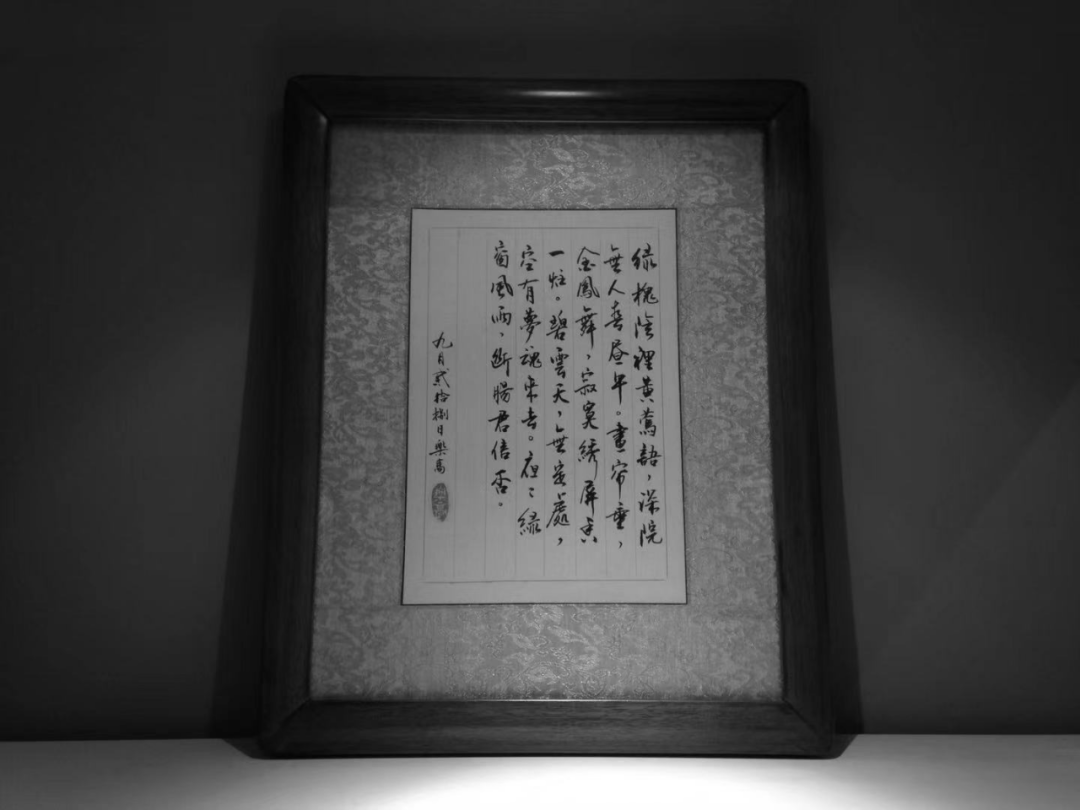 緑槐陰裡黄鶯語，深院
無人春昼午。畫帘垂，
金鳳舞，寂寞綉屏香
一炷。碧雲天，無定處，
空有夢魂来去。夜〻緑
窗風雨，斷腸君信否。
九月貳拾捌日樂